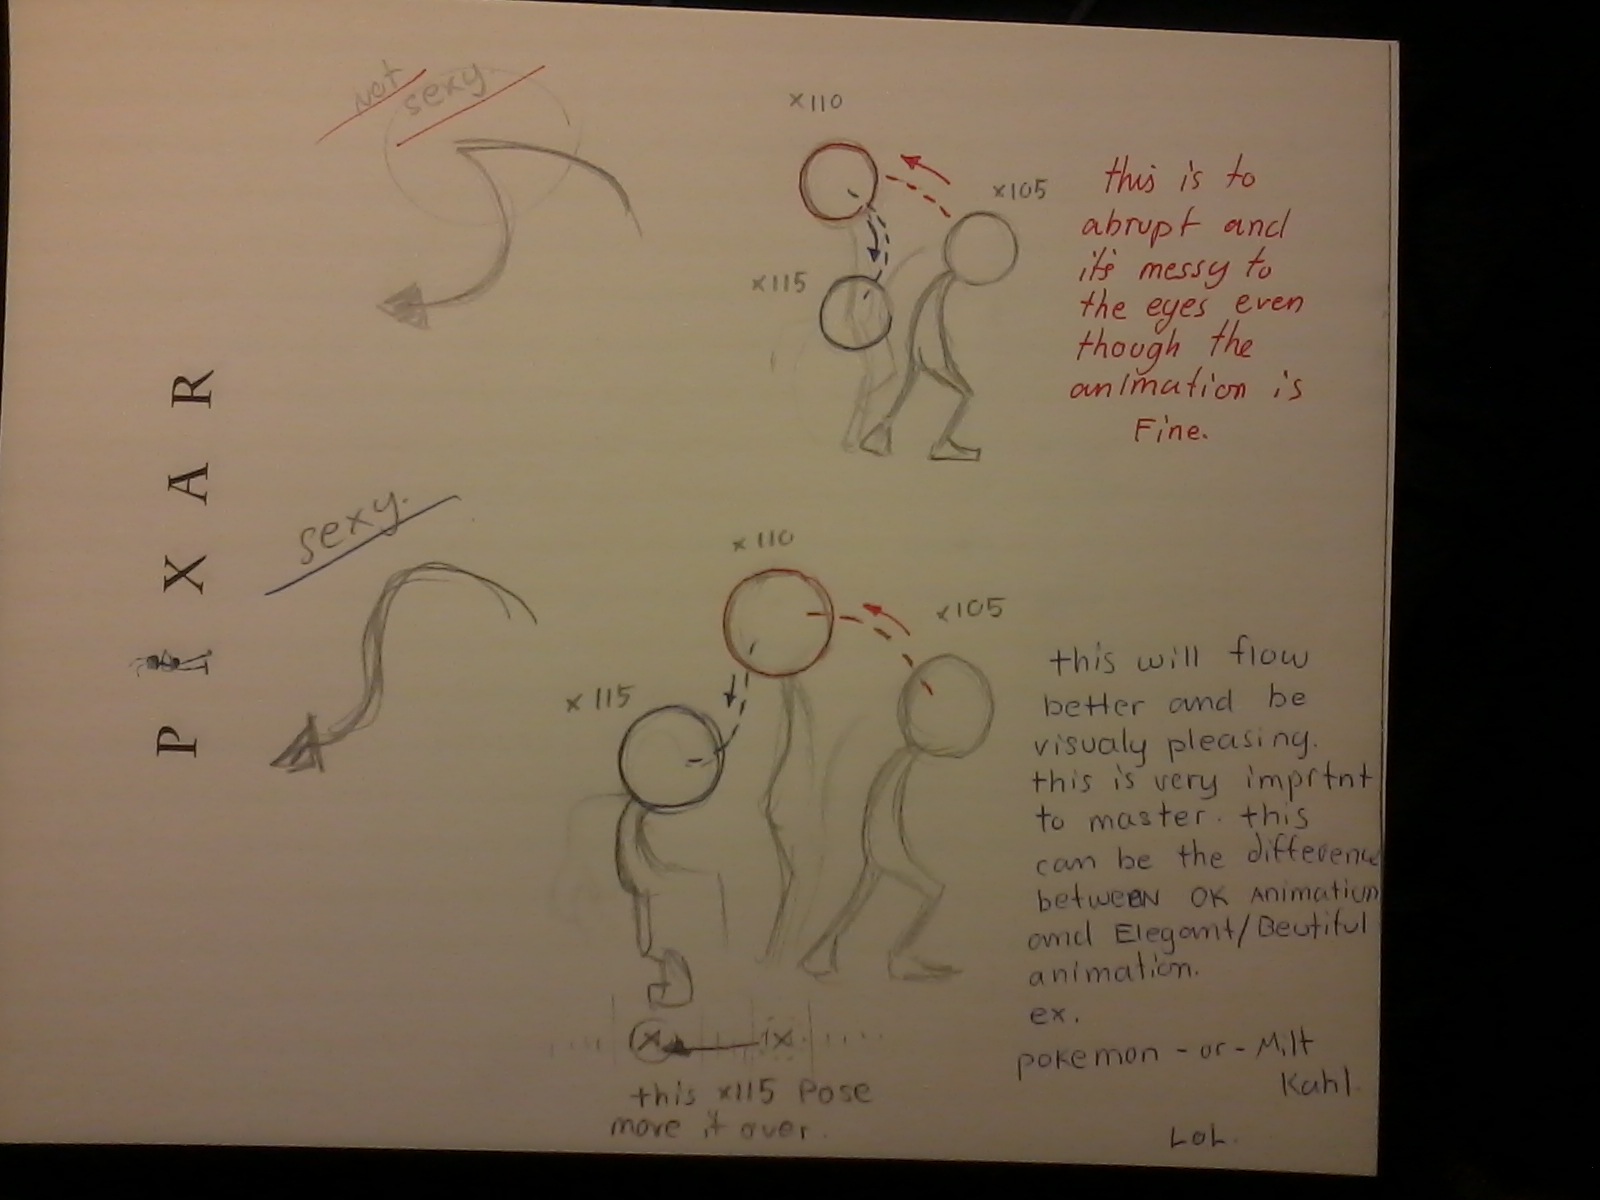 not sexy.
x110
x105
x115
this is to
abrupt and
it's messy to
the eyes even
though the
animation is
Fine.
PIXAR
sexy.
x110
x105
x115
this will flow
better and be
visualy pleasing.
this is very imprtnt
to master. this
can be the difference
betweEN OK ANimation
and Elegant/Beutiful
animation.
ex.
pokemon - or - Milt
Kahl.
LOL.
x ix
this x115 Pose
move it over.